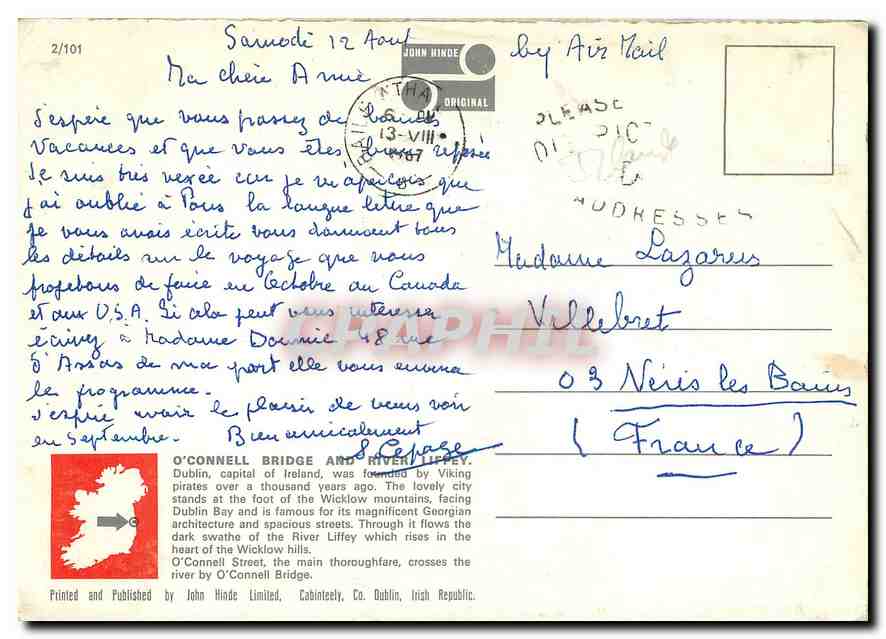 2/101
Samedi 12 Aout
by Air Mail
JOHN HINDE
ORIGINAL
Ma chère Amie
J'espère que vous passez de bonnes
vacances et que vous êtes bien reposée
Je suis très vexée car je m'aperçois que
j'ai oublié à Paris la longue lettre que
je vous avais écrite vous donnant tous
les détails sur le voyage que nous
projetons de faire en Octobre au Canada
et aux U.S.A. Si cela peut vous intéresser
écrivez à Madame Doumic 48 rue
d'Assas de ma part elle vous enverra
le programme.
J'espère avoir le plaisir de vous voir
en Septembre. Bien amicalement
S Lepage
13-VIII
PLEASE
ADDRESSES
Madame Lazareus
Villebret
03 Néris les Bains
(France)
CPAPHIL
O'CONNELL BRIDGE AND RIVER LIFFEY.
Dublin, capital of Ireland, was founded by Viking
pirates over a thousand years ago. The lovely city
stands at the foot of the Wicklow mountains, facing
Dublin Bay and is famous for its magnificent Georgian
architecture and spacious streets. Through it flows the
dark swathe of the River Liffey which rises in the
heart of the Wicklow hills.
O'Connell Street, the main thoroughfare, crosses the
river by O'Connell Bridge.
Printed and Published by John Hinde Limited, Cabinteely, Co. Dublin, Irish Republic.